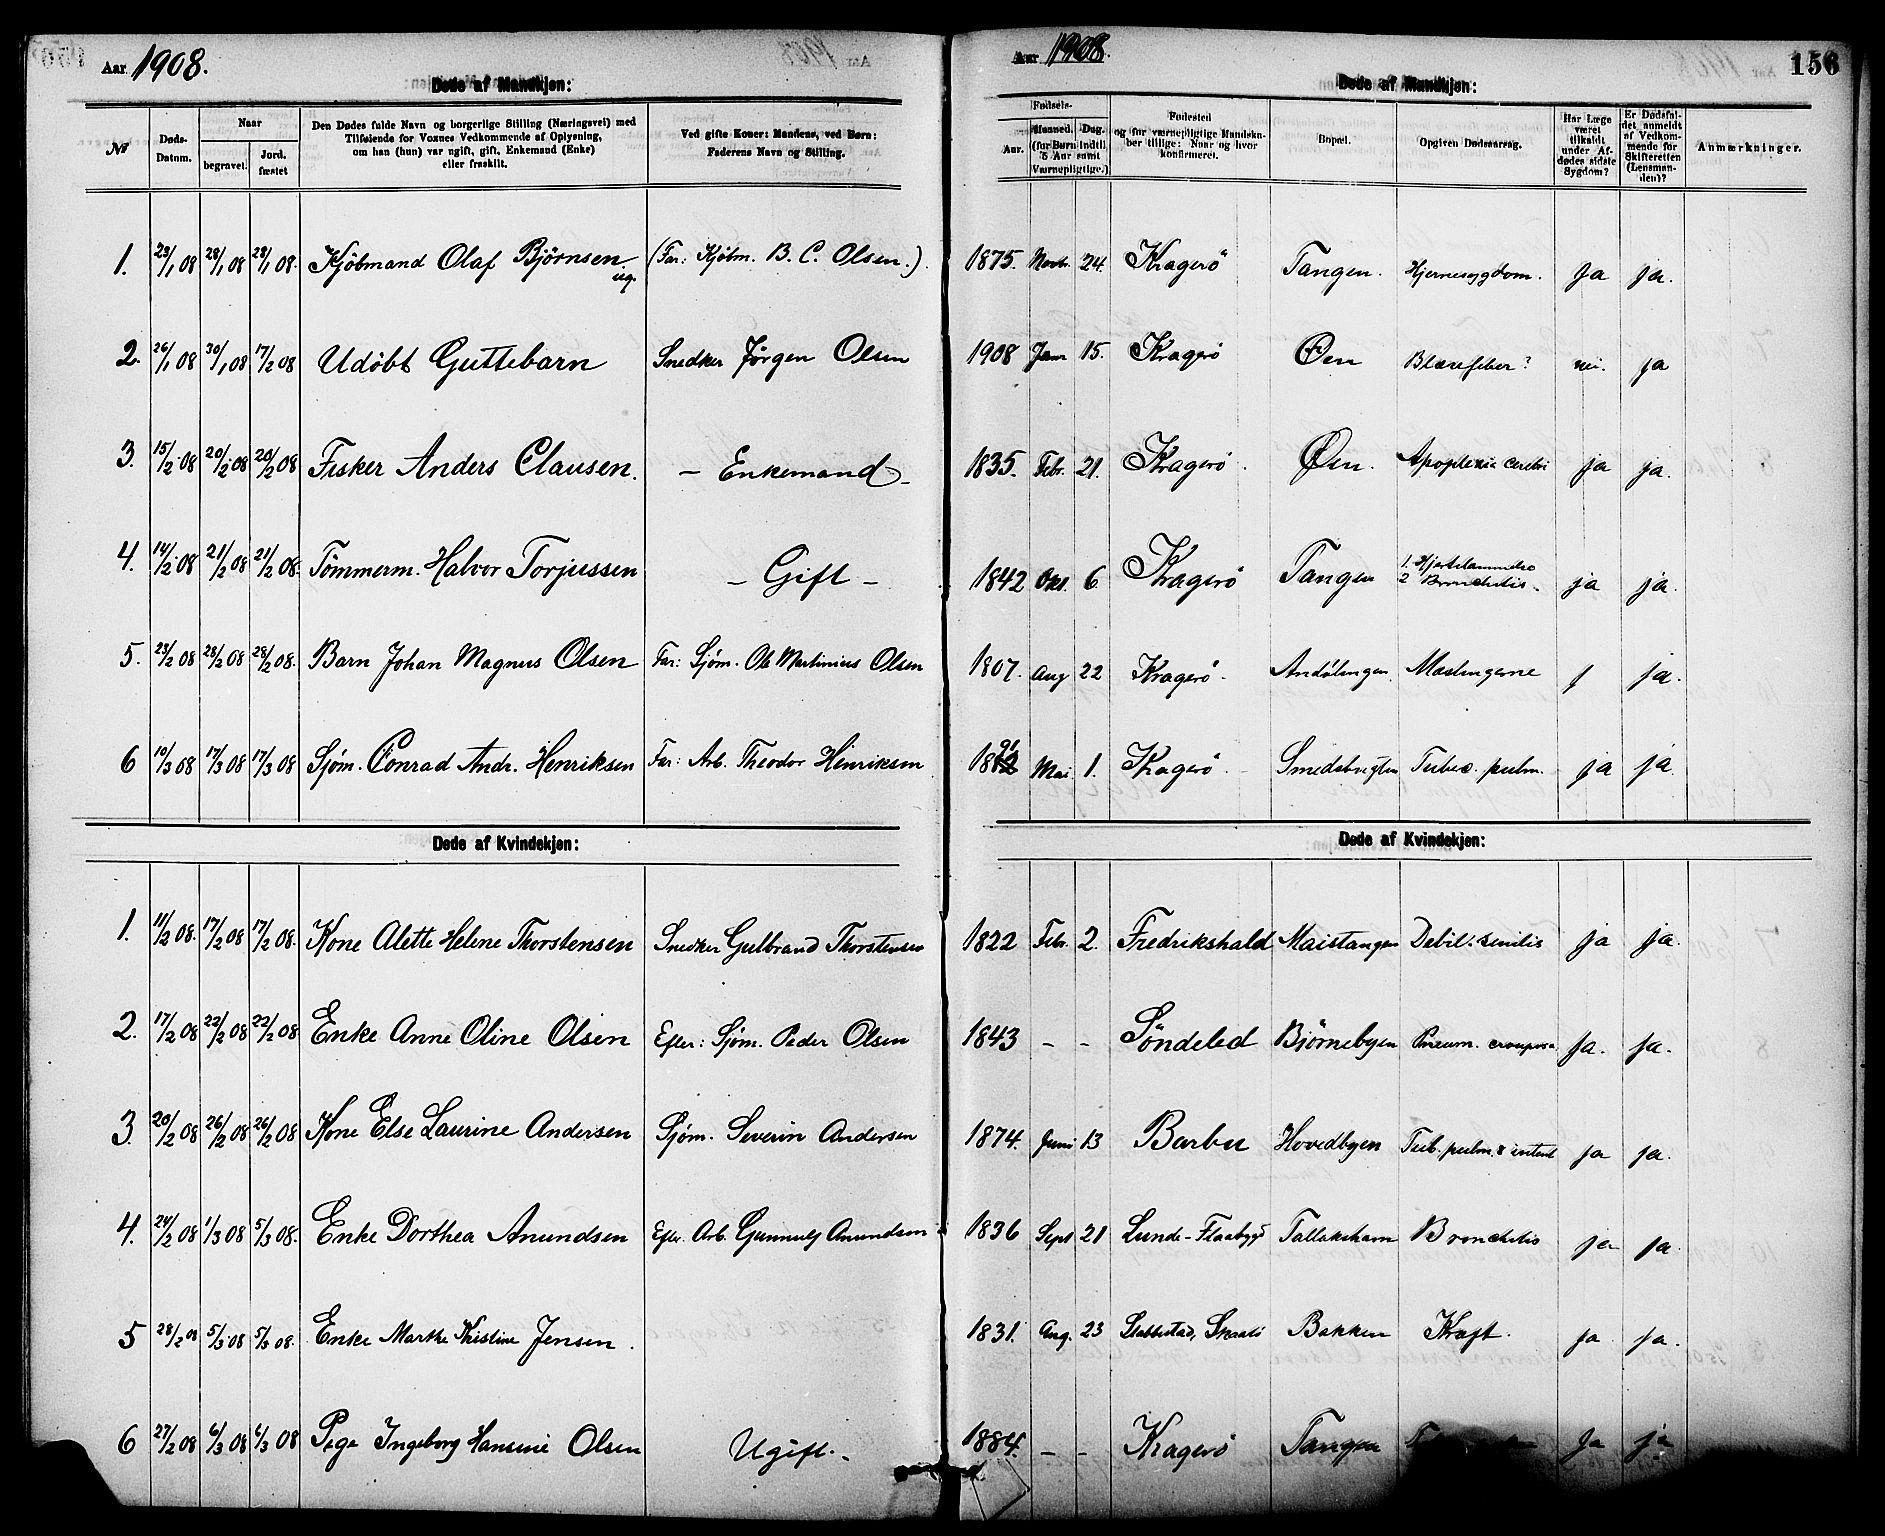 Aar 1908.
Døde af Mandkjøn:
№
Døds-Datum.
Naar
begravet.
Jord.fæstet
Den Dødes fulde Navn og borgerlige Stilling (Næringsvei) med
Tilføiende for Voxnes Vedkommende af Oplysning,
om han (hun) var ugift, gift, Enkemand (Enke)
eller fraskilt.
Ved gifte Koner: Mandens, ved Børn:
Faderens Navn og Stilling.
1. 23/1 08 28/1 08 28/1 08. Kjöbmand Olaf Björnsen ug. (Far: Kjöbm. B. C. Olsen.)
2. 26/1 08 30/1 08 17/2 08 Udöbt Guttebarn Snedker Jørgen Olsen
3. 15/2 08 20/2 08 20/2 08 Fisker Anders Clausen. – Enkemand –
4. 14/2 08 21/2 08 21/2 08. Tömmerm. Halvor Torjussen – Gift –
5. 23/2 08 28/2 08 28/2 08. Barn Johan Magnus Olsen Far: Sjøm. Ole Martinius Olsen
6 10/3 08 17/3 08 17/3 08 Sjøm. Conrad Andr. Henriksen Far: Arb. Theodor Henriksen
Døde af Kvindekjøn:
1. 11/2 08. 17/2 08 17/2 08. Kone Alette Helene Thorstensen Snedker Gulbrand Thorstensen
2. 17/2 08 22/2 08 22/2 08 Enke Anne Oline Olsen Efter: Sjøm. Peder Olsen
3. 20/2 08 26/2 08 26/2 08 Kone Else Laurine Andersen Sjøm. Severin Andersen
4. 24/2 08 1/3 08 5/3 08. Enke Dorthea Anundsen Efter. Arb. Gunnulf Anundsen
5 28/2 08 5/3 08 5/3 08. Enke Marthe Kristine Jensen.
6 27/2 08 6/3 08 6/3 08 Pige Ingeborg Hansine Olsen Ugift.
Aar 1908.
156
Døde af Mandkjøn:
Fødsels-
Aar.
Maaned. Dag.
(for Børn indtil
5 Aar samt
Værnepligtige.)
Fødested
og for værnepligtige Mandskaber tillige: Naar og hvor
konfirmeret.
Bopæl.
Opgiven Dødsaarsag.
Har Læge
været
tilkaldt
under Afdødes sidste
Sygdom?
Er Dødsfaldet anmeldt
af Vedkommende for
Skifteretten
(Lensmanden)?
Anmærkninger.
1875. Novbr. 24. Kragerö Tangen. Hjernesygdom. Ja ja.
1908 Janr 15. Kragerö Øen Blærefeber? nei. ja
1835. Febr. 21. Kragerö. Øen. Apoplexia cerebri ja ja.
1842 Okt. 6 Kragerö Tangen 1. Hjertelammelse 2 Bronchitis. ja ja.
1807. Aug 22 Kragerö. Andölingen Mæslingerne j ja.
1891 Mai 1. Kragerö. Smedsbugten Tuberc. pulm. ja ja
Døde af Kvindekjøn:
1822 Febr. 2. Fredrikshald Maistangen Debil. senilis ja ja.
1843 – – Söndeled Björnebyen Pneum. crouposa ja. ja.
1874. Juni 13 Barbu Hovedbyen Tub. pulm. & intest ja ja.
1836 Sept 21 Lunde-Flaabygd Tallakshavn Bronchitis ja ja.
1831. Aug. 23 Stabbestad, Skaatö Bakken Kræft. ja ja.
1884. – – Kragerö Tangen Ja ja